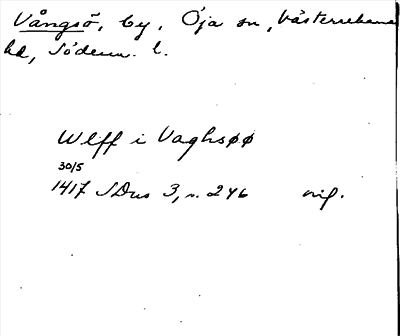 Vångsö, by, Öja sn, Västerrekarne
hd, Söderm. l.
Wlff i Vaghsøø
30/5
1417 SDns 3, s. 246 orig.